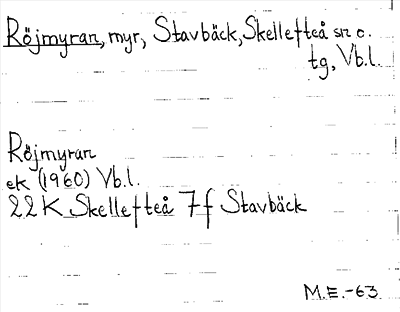 Röjmyran, myr, Stavbäck, Skellefteå sn o.
tg, Vb.l.
Röjmyran
ek (1960) Vb.l.
22 K Skellefteå 7f Stavbäck
M.E.-63